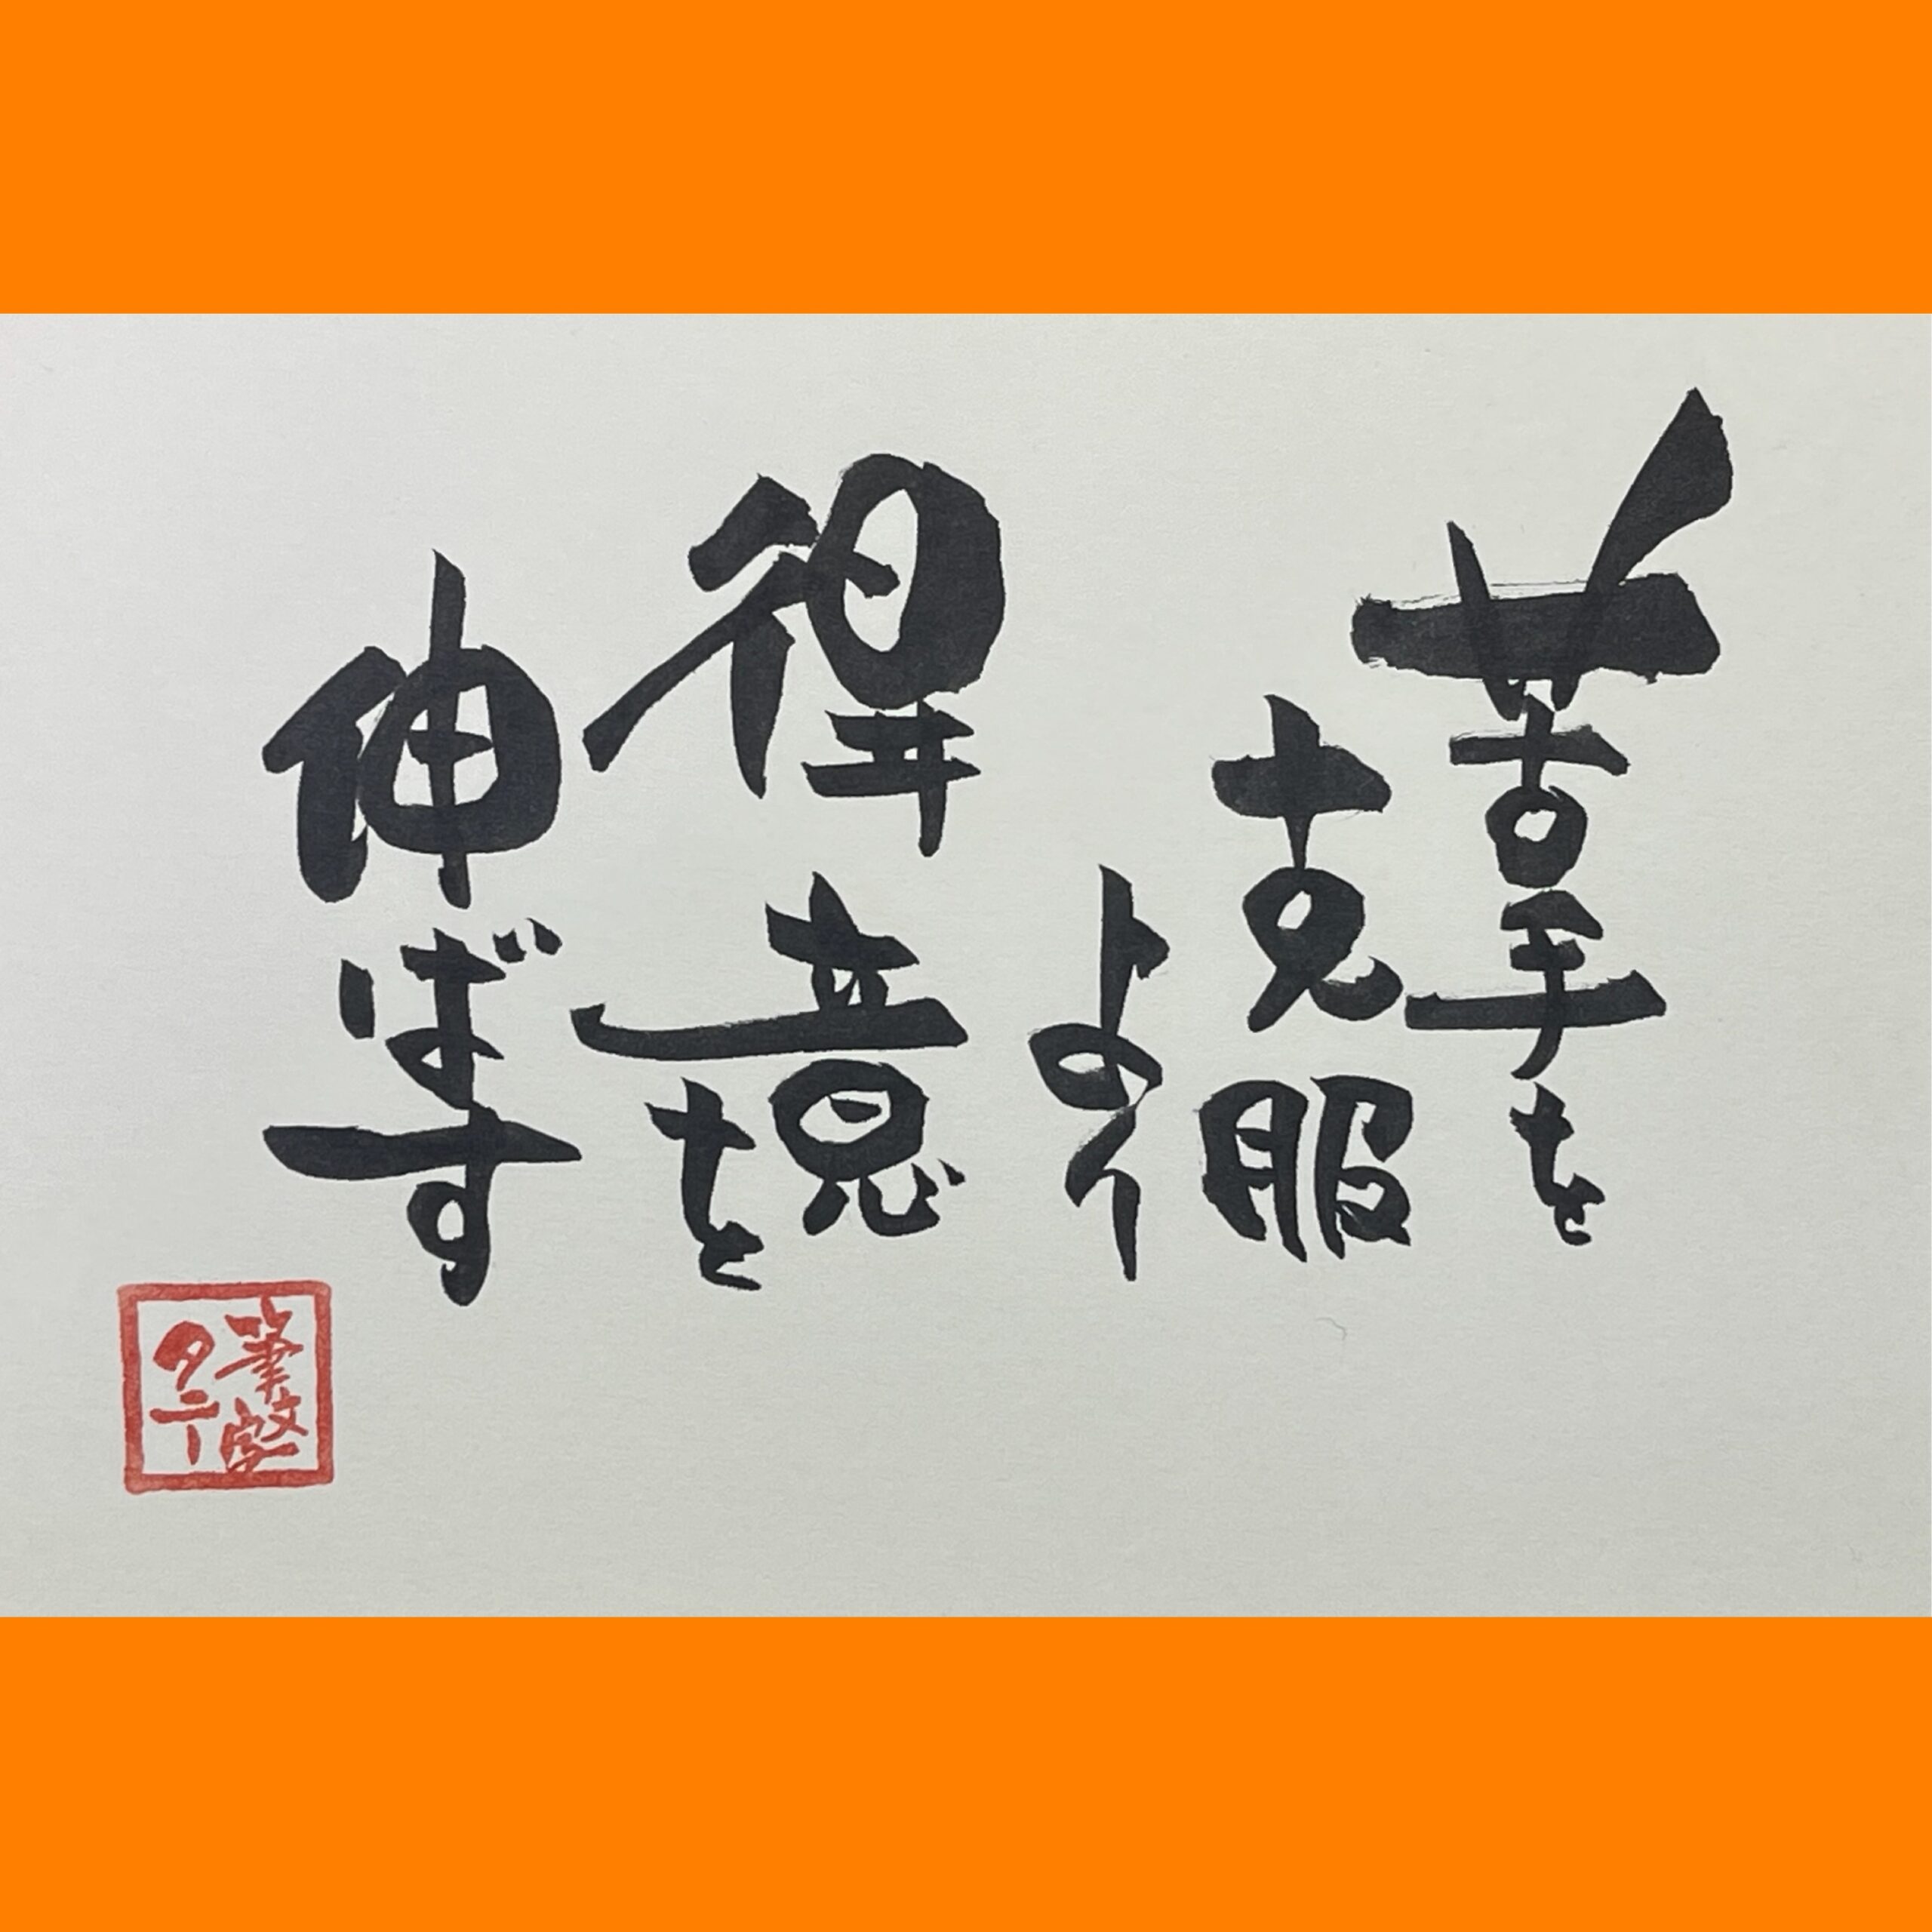 苦手を
克服
より
得意を
伸ばす
筆文字
タニー